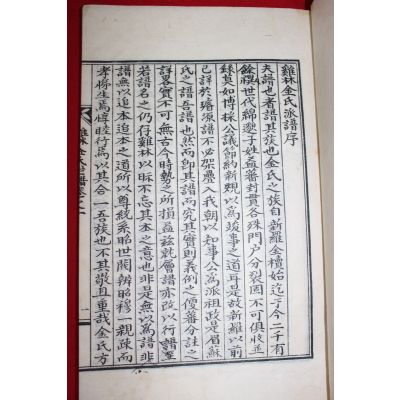 雞林金氏派譜序
夫譜也者譜其族也金氏之族自新羅金櫝始迄于今二千有
餘禩世代綿邈子姓益蕃封貫各殊門户分裂固不可俱收並
錄莫如博採公議節約新規以爲竣事之道耳是故新羅以前
已詳於璿源譜不必架疊入我朝以知事公爲派祖政是眉蘇
氏之譜吾譜也然而即其譜而究其實則義例之優蕃分註之
詳畧實不可無古今時勢之所損益玆就會譜亦改以行譜至
若譜名之仍存雞林以眎不忘其本之意也非是無以爲譜非
譜無以追本追本之道所以尊統系昭世閥辨昭穆一親疎而
孝悌生焉惇睦行焉以其合一吾族也不其敬且重哉金氏方
雞林金氏派譜卷之一
一